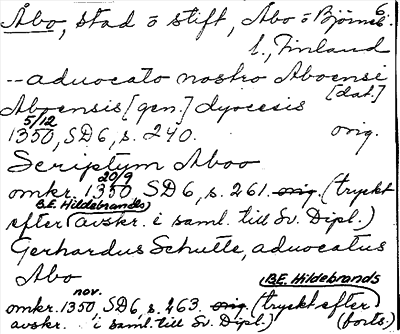 Åbo, stad o stift, Åbo o Björneb. 6.
l., Finland
-- aduocato nostro Aboensi [dat.]
Aboensis [gen.] dyocesis
5/12
1350, SD6, s. 240. orig.
Scriptum Aboo
20/9
omkr. 1350 SD6, s. 261. orig. (tryckt
B.E. Hildebrands
efter avskr. i saml. till Sv. Dipl.)
Gerhardus Schutte, aduocatus
Abo
nov. B.E. Hildebrands
omkr. 1350, SD6, s. 463. orig. (tryckt efter
avskr. i saml. till Sv. Dipl.) (forts.)